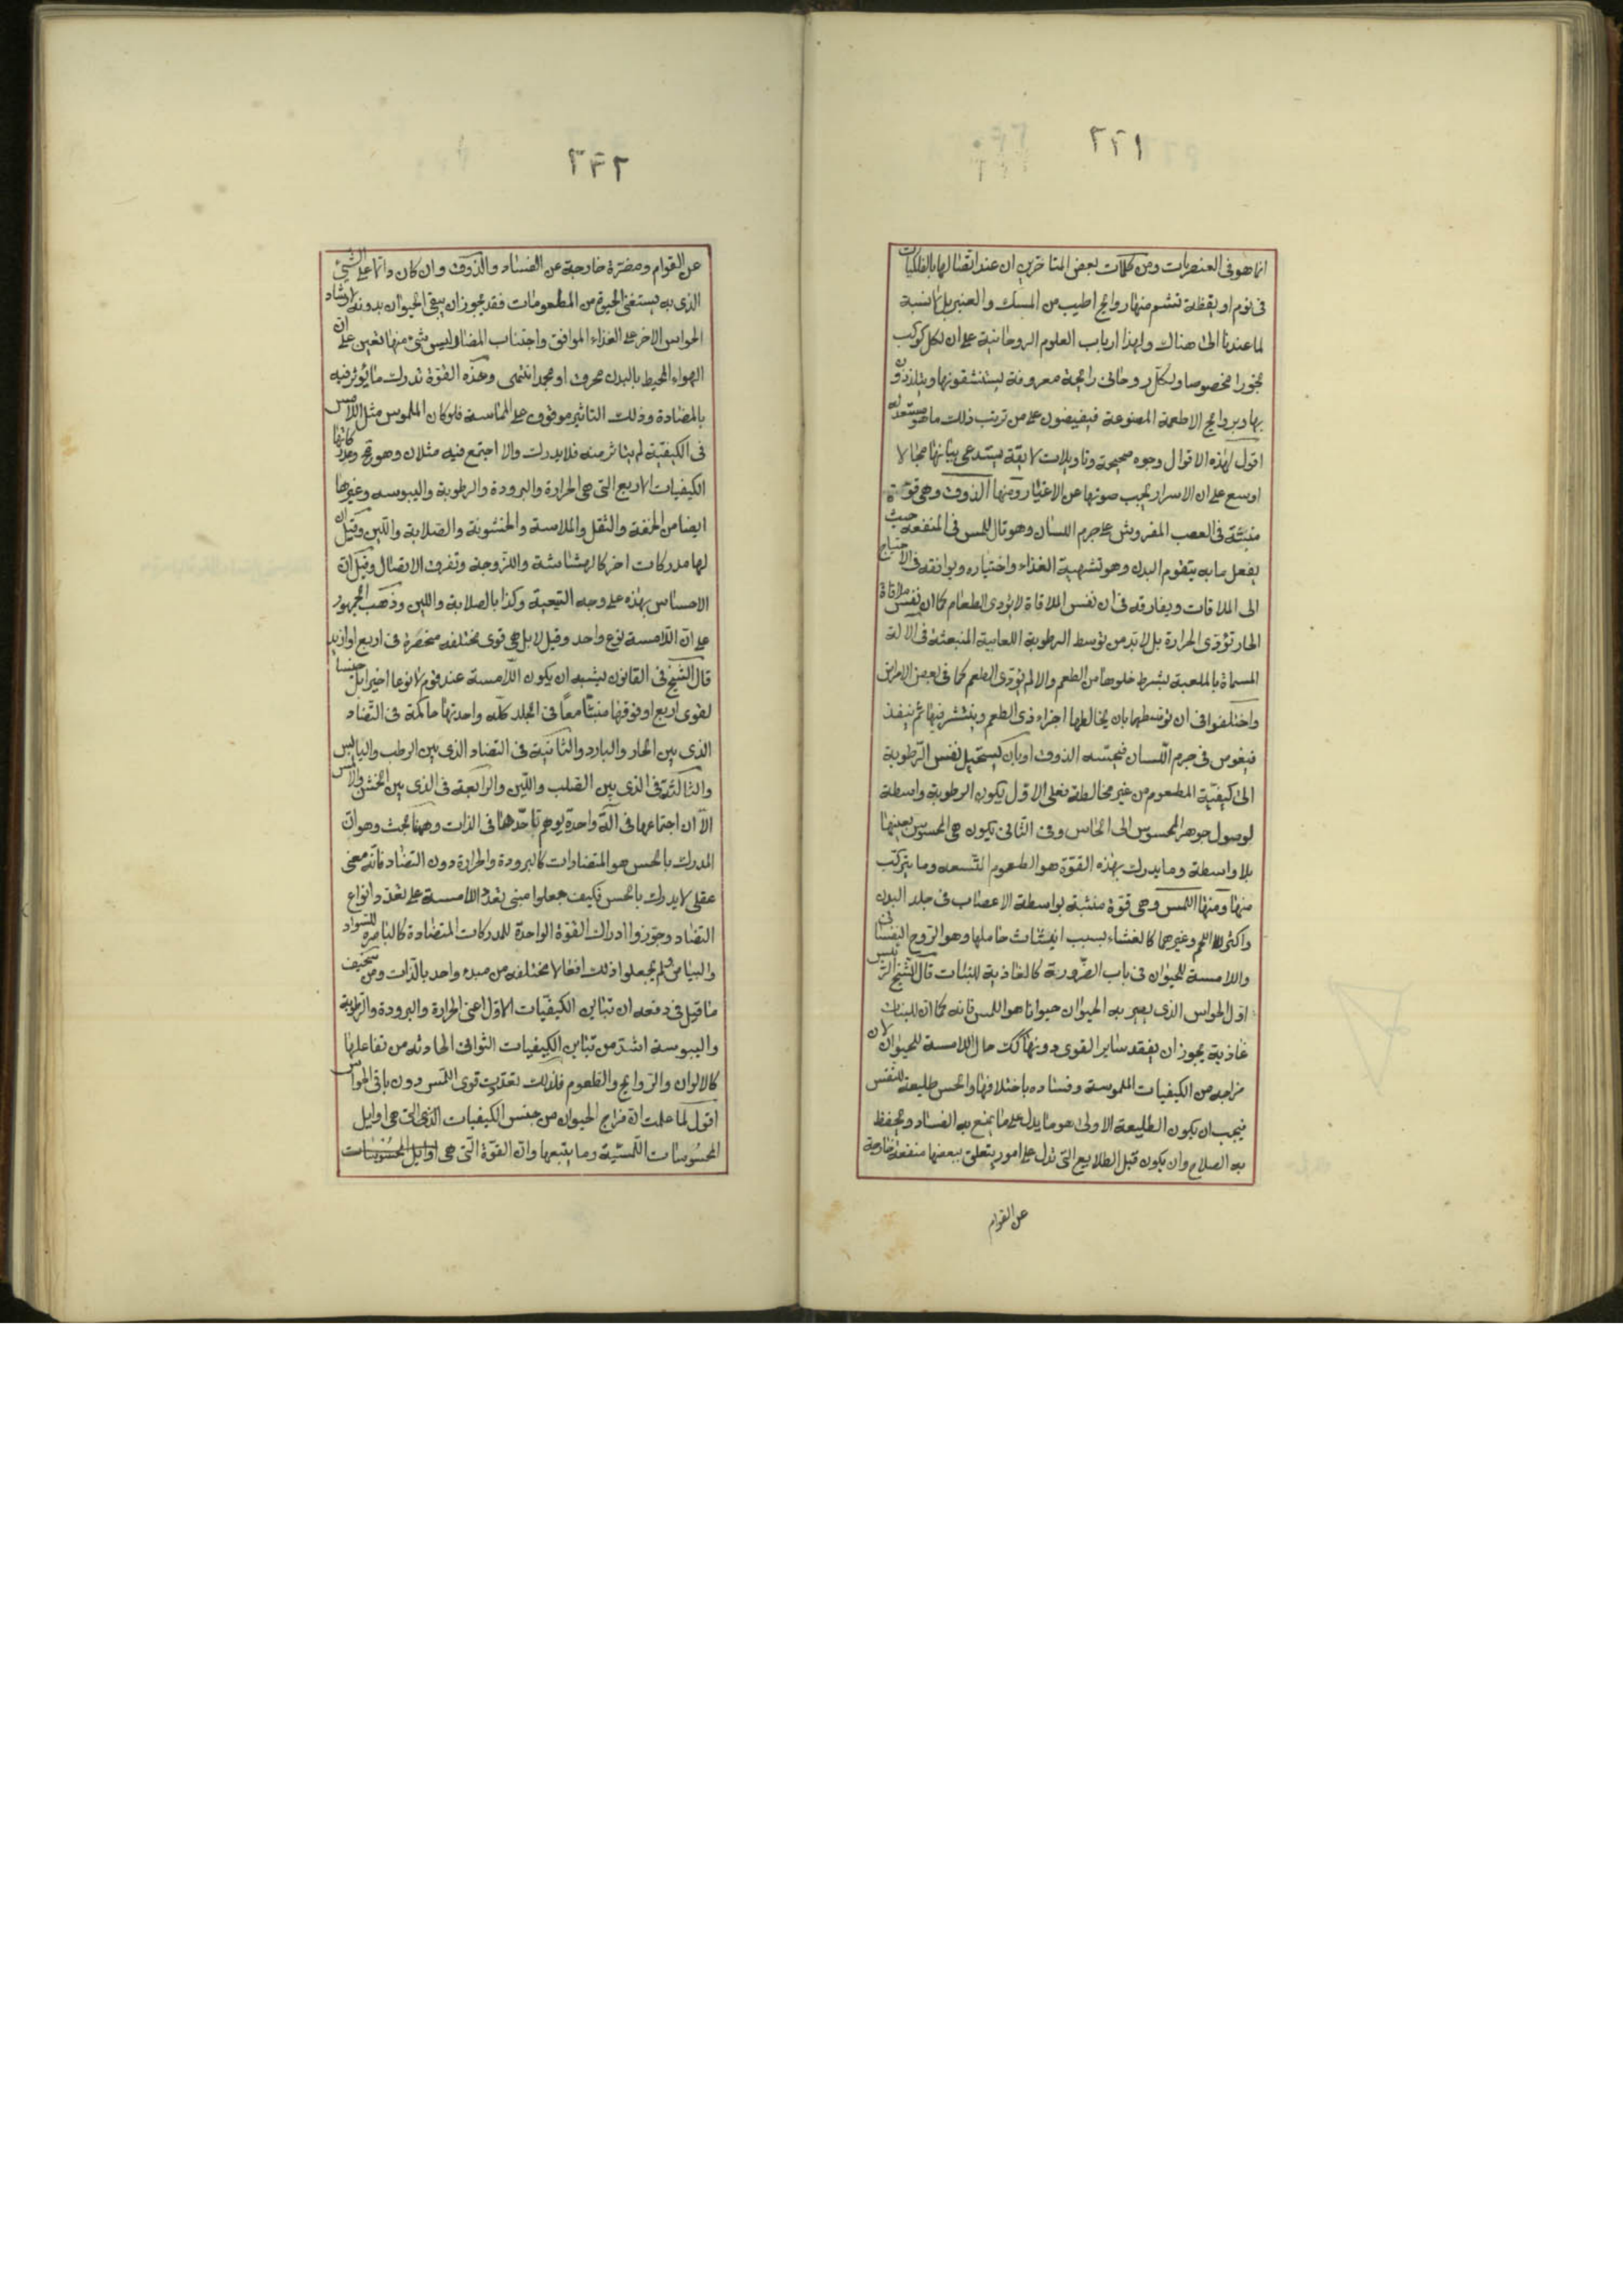 ٢٢١
انما هو فى العنصريات ومن كلمات بعض المتاخرين ان عند اتصالها بالفلكيات
فى نوم او يقظة تشم منها روايح اطيب من المسك والعنبر بل لا نسبة
لما عندنا الى هناك ولهذا ارباب العلوم الروحانية على ان لكل كوكب
بخورا مخصوصا ولكل روحانى رائحة معروفة يستنشقونها ويتلذذون
بها وبروايح الاطعمة المصنوعة فيفيضون على من ترتب ذلك ما هو مستعد له
اقول لهذه الاقوال وجوه صحيحة وتاويلات لايقة يستدعى بيانها مجالا
اوسع على ان الاسرار يجب صونها عن الاغيار ومنها الذوق وهى قوة
منبثة فى العصب المفروش على جرم اللسان وهو تال للمس فى المنفعة حيث
يفعل ما به يتقوم البدن وهو تشهية الغذاء واختياره ويوافقه فى الاحتياج
الى الملاقات ويفارقه فى ان نفس الملاقاة لا يؤدى الطعام كما ان نفس ملاقاة
الحار تؤدى الحرارة بل لابد من توسط الرطوبة اللعابية المنبعثة فى الالة
المسماة بالملعبة بشرط خلوها من الطعم والا لم يؤدى الطعم كما فى بعض الامراض
واختلفوا فى ان توسطها بان يخالطها اجزاء ذى الطعم وينتشر فيها ثم ينفذ
فيغوص فى جرم اللسان فيحسه الذوق او بان يستحيل نفس الرطوبة
الى كيفية المطعوم من غير مخالطة فعلى الاول يكون الرطوبة واسطة
لوصول جوهر المحسوس الى الحاس وفى الثانى يكون هى المحسوس بعينها
بلا واسطة وما يدرك بهذه القوة هو الطعوم التسعه وما يتركب
منها ومنها اللمس وهى قوة منبثة بواسطة الاعصاب فى جلد البدن
واكثر اللحم وغيرهما كالغشاء بسبب انبثاث حاملها وهو الروح النفسانى
واللامسة للحيوان فى باب الضرورية كالغاذية للنبات قال الشيخ الرئيس
اول الحواس الذى يصير به الحيوان حيوانا هو اللمس فانه كما ان للنبات
غاذية يجوز ان يفقد ساير القوى دونها كك حال اللامسة للحيوان لان
مزاجه من الكيفيات الملموسة وفساده باختلافها والحس طليعة للنفس
فيجب ان يكون الطليعة الاولى هو ما يدل على ما يمنع به الفساد ويحفظ
به الصلاح وان يكون قبل الطلايع التى تدل على امور يتعلق ببعضها منفعة خارجة
عن القوام
٢٢٢
عن القوام ومضرة خارجة عن الفساد والذوق وان كان دالا على الشئ
الذى به يستغنى الحيوة من المطعومات فقد يجوز ان يبقى الحيوان بدونه ارشاد
الحواس الاخر على الغذاء الموافق واجتناب المضار وليس شئ منها تعين على ان
الهواء المحيط بالبدن محرق او مجمد انتهى وهذه القوة تدرك ما يؤثر فيه
بالمضادة وذلك التاثير موقوف على المماسة فلو كان الملموس مثل اللامس
فى الكيفية لم يتاثر منه فلا يدرك والا اجتمع فيه مثلان وهو مح ومدركاتها
الكيفيات الاربع التى هى الحرارة والبرودة والرطوبة واليبوسه وغيرها
ايضا من الخفة والثقل والملاسة والخشونة والصلابة واللين وقيل ان
لها مدركات اخر كالهشاشة واللزوجة وتفرق الاتصال وقيل ان
الاحساس بهذه على وجه التبعية وكذا بالصلابة واللين وذهب الجمهور
على ان اللامسة نوع واحد وقيل لا بل هى قوى مختلفه منحصرة فى اربع او ازيد
قال الشيخ فى القانون يشبه ان يكون اللامسة عند قوم لا نوعا اخيرا بل جنسا
لقوى اربع او فوقها منبثا معا فى الجلد كله واحدتها حاكمة فى التضاد
الذى بين الحار والبارد والثانية فى التضاد الذى بين الرطب واليابس
والثالثة فى الذى بين الصلب واللين والرابعة فى الذى بين الخشن والاملس
الا ان اجتماعها فى الة واحدة يوهم تاحدها فى الذات وههنا بحث وهو ان
المدرك بالحس هو المتضادات كالبرودة والحرارة دون التضاد فانه معنى
عقلى لا يدرك بالحس فكيف جعلوا مبنى تعدد اللامسة على تعدد انواع
التضاد وجوزوا ادراك القوة الواحدة للمدركات المتضادة كالباصره للسواد
والبياض ولم يجعلوا ذلك افعالا مختلفه من مبدء واحد بالذات ومن سخيف
ما قيل فى دفعه ان تباين الكيفيات الاول اعنى الحرارة والبرودة والرطوبة
واليبوسة اشد من تباين الكيفيات الثوانى الحادثه من تفاعلها
كالالوان والروايح والطعوم فلذلك تعددت قوى اللمس دون باقى الحواس
اقول لما علمت ان مزاج الحيوان من جنس الكيفيات التى هى اوايل
المحسوسات اللمسية وما يتبعها وان القوة التى هى اوايل المحسوسات